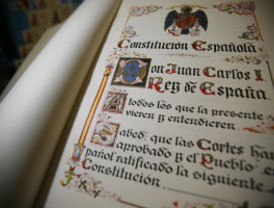 Constitución Española
Don Juan Carlos I
Rey de España
A todos los que la presente
vieren y entendieren
Sabed: que las Cortes han
aprobado y el Pueblo Es-
pañol ratificado la siguiente
Constitución